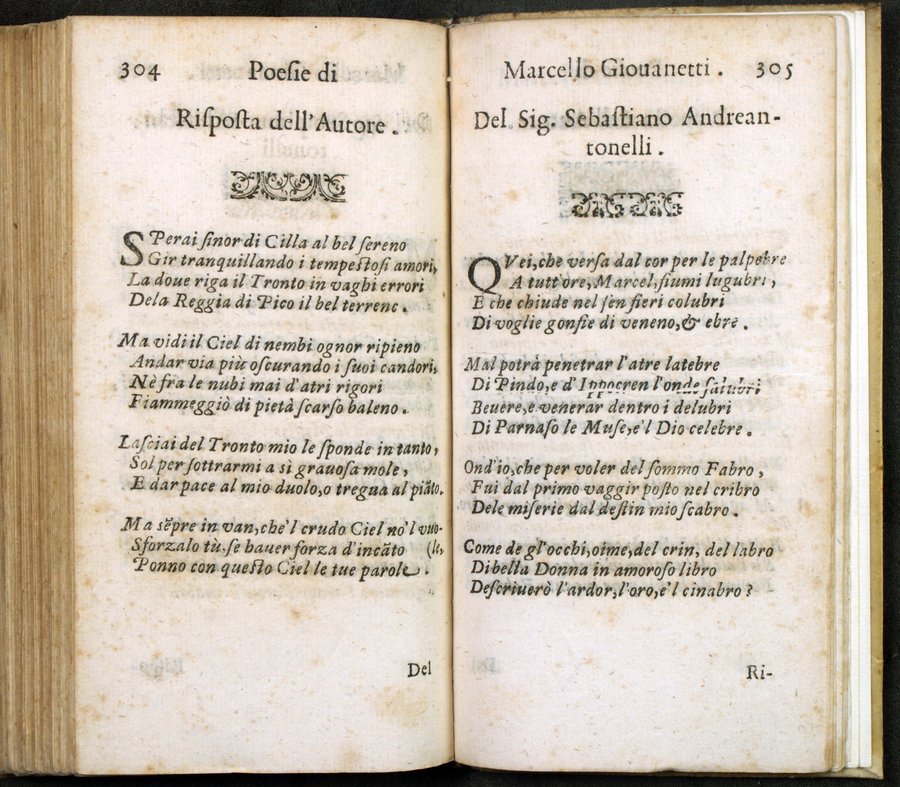 304 Poeſie di
Riſpoſta dell'Autore.
SPerai ſinor di Cilla al bel ſereno
Gir tranquillando i tempeſtoſi amori,
La doue riga il Tronto in vaghi errori
Dela Reggia di Pico il bel terreno.
Ma vidi il Ciel di nembi ognor ripieno
Andar via più oſcurando i ſuoi candori,
Nè fra le nubi mai d'atri rigori
Fiammeggiò di pietà ſcarſo baleno.
Laſciai del Tronto mio le ſponde in tanto,
Sol per ſottrarmi a sì grauoſa mole,
E dar pace al mio duolo, o tregua al piãto.
Ma sẽpre in van, che'l crudo Ciel no'l vuo-
Sforzalo tù, ſe hauer forza d'incãto (le,
Ponno con queſto Ciel le tue parole.
Del
Marcello Giouanetti. 305
Del Sig. Sebaſtiano Andrean-
tonelli.
QVei, che verſa dal cor per le palpebre
A tutt'ore, Marcel, fiumi lugubri,
E che chiude nel ſen fieri colubri
Di voglie gonfie di veneno, & ebre.
Mal potrà penetrar l'atre latebre
Di Pindo, e d'Ippocren l'onde ſalubri
Beuere, e venerar dentro i delubri
Di Parnaſo le Muſe, e'l Dio celebre.
Ond'io, che per voler del ſommo Fabro,
Fui dal primo vaggir poſto nel cribro
Dele miſerie dal deſtin mio ſcabro.
Come de gl'occhi, oime, del crin, del labro
Di bella Donna in amoroſo libro
Deſcriuerò l'ardor, l'oro, e'l cinabro?
Ri-